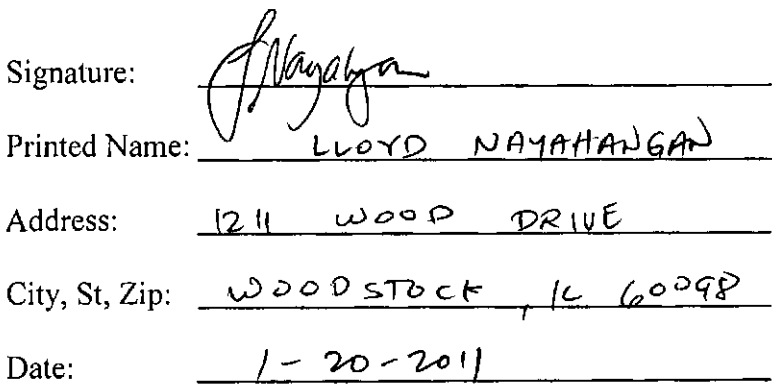 Signature:
Printed Name: LLOYD NAYAHANGAN
Address: 1211 WOOD DRIVE
City, St, Zip: WOODSTOCK, IL 60098
Date: 1-20-2011